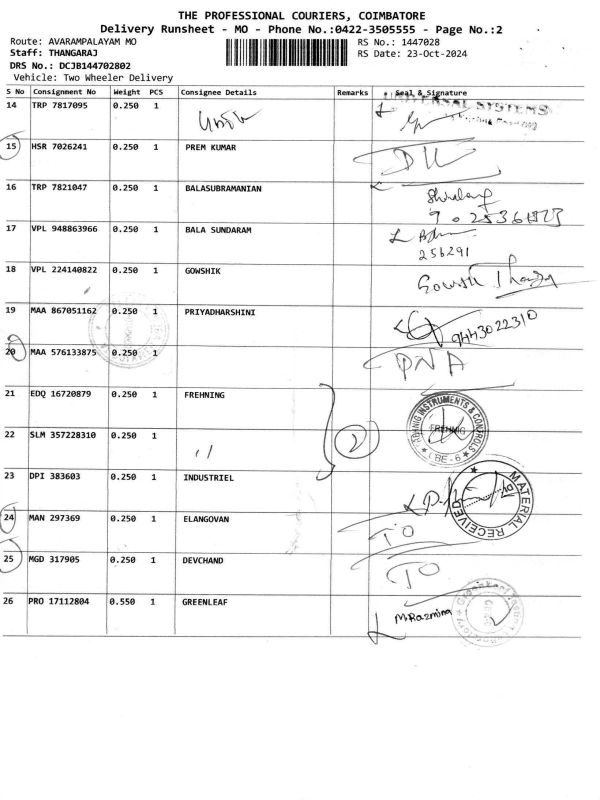 THE PROFESSIONAL COURIERS, COIMBATORE
Delivery Runsheet - MO - Phone No.:0422-3505555 - Page No.:2
Route: AVARAMPALAYAM MO RS No.: 1447028
Staff: THANGARAJ RS Date: 23-Oct-2024
DRS No.: DCJB144702802
Vehicle: Two Wheeler Delivery
S No Consignment No Weight PCS Consignee Details Remarks Seal & Signature
14 TRP 7817095 0.250 1 UNIVERSAL SYSTEMS
15 HSR 7026241 0.250 1 PREM KUMAR DL
16 TRP 7821047 0.250 1 BALASUBRAMANIAN
17 VPL 948863966 0.250 1 BALA SUNDARAM
256291
18 VPL 224140822 0.250 1 GOWSHIK Gowsik
19 MAA 867051162 0.250 1 PRIYADHARSHINI 9443022310
20 MAA 576133875 0.250 1 DNA
21 EDQ 16720879 0.250 1 FREHNING FREHNIG INSTRUMENTS & CONTROLS FREHNIG CBE-6
22 SLM 357228310 0.250 1 " 2
23 DPI 383603 0.250 1 INDUSTRIEL MATERIAL RECEIVED
24 MAN 297369 0.250 1 ELANGOVAN TO
25 MGD 317905 0.250 1 DEVCHAND TO
26 PRO 17112804 0.550 1 GREENLEAF